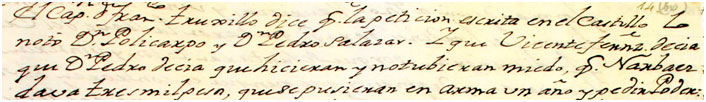 14 (60)
El Cap.n fran.co truxillo dice q. la peticion escrita en el Castillo lo
notó D.n Policarpo y D.n Pedro Salazar. Y que Vicente fernz. decia
que D.n Pedro decia que hicieran y no tubieran miedo, q. Narbaez
dava tres mil pesos, que se pusieran en arma un año y pedir Poder.